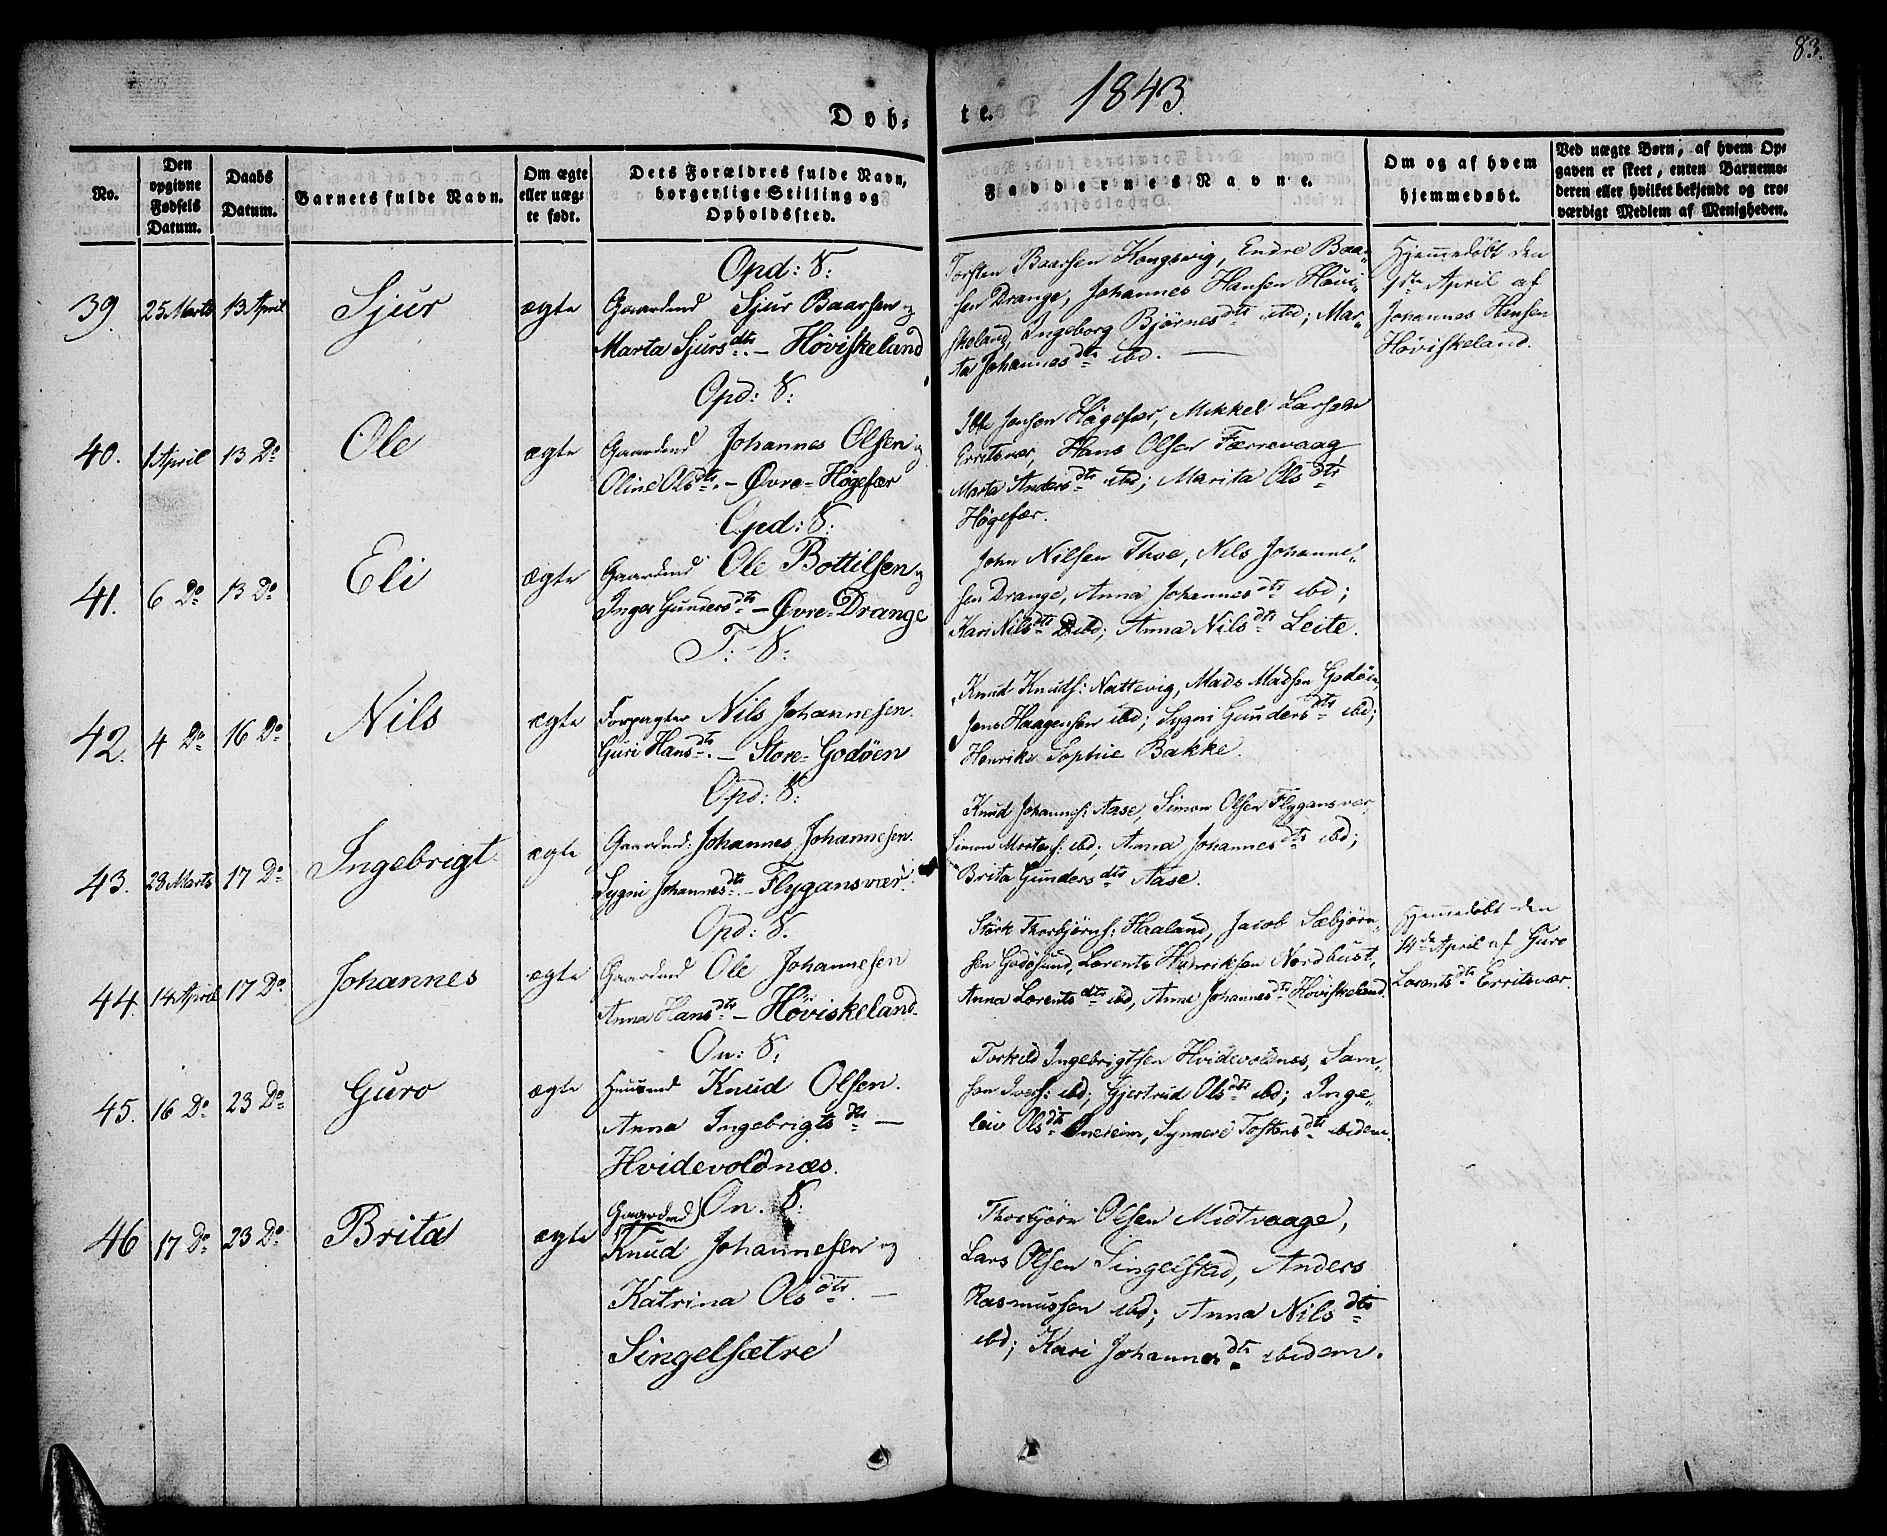 83.
Døb-
te.
1843.
No.
Den
opgivne
Fødsels
Datum.
Daabs
Datum.
Barnets fulde Navn.
Om ægte
eller uæg-
te født.
Dets Forældres fulde Navn,
borgerlige Stilling og
Opholdssted.
Faddernes Navne.
Om og af hvem
hjemmedøbt.
Ved uægte Børn, af hvem Op-
gaven er skeet, enten Barnemo-
deren eller hvilket bekjendt og tro-
værdigt Medlem af Menigheden.
39. 25 Marts 13 April Sjur ægte
Opd: S:
Gaardmd Sjur Baarsen og
Marta Sjursdtr. – Höviskeland
Torsten Baarsen Kongsvig, Endre Baar-
sen Drange, Johannes Hansen Hövi-
skeland, Ingeborg Björnesdtr ibd; Mar-
ta Johannesdtr ibd. —
Hjemmedöbt den
9de April af
Johannes Hansen
Höviskeland.
40. 1 April 13 Do Ole ægte
Opd: S:
Gaardmd Johannes Olsen og
Oline Olsdtr. – Øvre-Högefær
Jensen Högefær, Mikkel Larsen
Erritsvær, Hans Olsen Færrevaag
Marta Andersdtr ibd; Marita Olsdtr
Högefær.
41. 6 Do 13 Do Eli ægte
Opd: S:
Gaardmd Ole Bottilsen og
Inger Gundersdtr – Øvre-Drange
John Nilsen Thoe, Nils Johanne-
sen Drange, Anna Johannesdtr ibd;
Kari Nilsdtr ibd; Anna Nilsdtr Leite.
42. 4 Do 16 Do Nils ægte
T: S:
Forpagter Nils Johannesen.
Guri Hansdtr. – Store-Godøen
Knud Knuds: Nattevig, Mads Madsen Godøen,
Jens Haagensen ibd; Sygni Gundersdtr ibd;
Henrike Sophie Bakke.
43. 23 Marts 17 Do Ingebrigt ægte
Opd: S:
Gaardmd: Johannes Johannesen.
Sygni Johannesdtr. – Flygansvær.
Knud Johanns: Aase, Simon Olsen Flygansvær,
Simon Mortens: ibd; Anna Johannesdtr ibd;
Brita Gundersdtr Aase.
44. 14 April 17 Do Johannes ægte
Opd: S:
Gaardmd Ole Johannesen
Anna Hansdtr – Höviskeland.
Störk Thorbjörns: Haaland, Jacob Sæbjörn-
sen Godösund, Lorents Henriksen Nordhust,
Anna Lorentsdtr ibd, Anne Johannesdtr Höviskeland.
Hjemmedöbt den
14de April af Guro
Lorentsdtr Erritsvær.
45. 16 Do 23 Do Guro ægte
On: S:
Huusmd Knud Olsen.
Anna Ingebrigtsdtr —
Hvidevoldnæs.
Torkild Ingebrigtsen Hvidevoldnæs, Sam-
son Ivers: ibd; Gjertrud Olsdtr ibd; Inge-
leiv Olsdtr Oneieim, Synneve Tostensdtr ibidem.
46 17 Do 23 Do Brita ægte
Gaardmd On. S:
Knud Johannesen og
Katrina Olsdtr. —
Singelsætre
Thorbjörn Olsen Midtvaage,
Lars Olsen Singelstad, Anders
Rasmussen ibd; Anna Nilsdtr
ibd; Kari Johannesdtr ibidem.